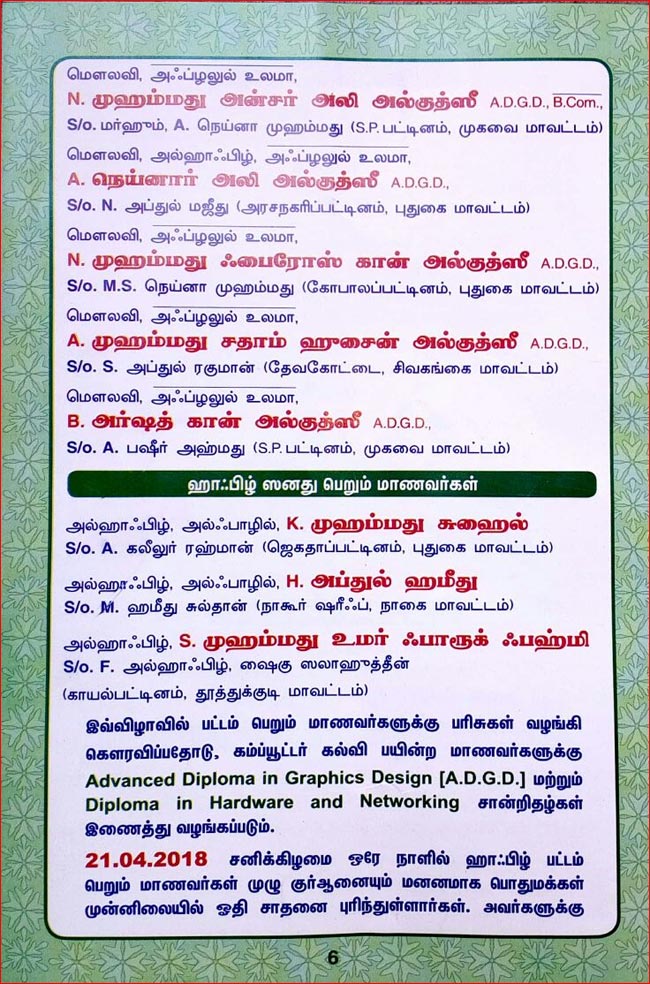 மௌலவி, அஃப்ழலுல் உலமா,
N. முஹம்மது அன்சர் அலி அல்குத்ஸீ A.D.G.D., B.Com.,
S/o. மர்ஹும், A. நெய்னா முஹம்மது (S.P. பட்டினம், முகவை மாவட்டம்)
மௌலவி, அல்ஹாஃபிழ், அஃப்ழலுல் உலமா,
A. நெய்னார் அலி அல்குத்ஸீ A.D.G.D.,
S/o. N. அப்துல் மஜீது (அரசநகரிப்பட்டினம், புதுகை மாவட்டம்)
மௌலவி, அஃப்ழலுல் உலமா,
N. முஹம்மது ஃபைரோஸ் கான் அல்குத்ஸீ A.D.G.D.,
S/o. M.S. நெய்னா முஹம்மது (கோபாலப்பட்டினம், புதுகை மாவட்டம்)
மௌலவி, அஃப்ழலுல் உலமா,
A. முஹம்மது சதாம் ஹுசைன் அல்குத்ஸீ A.D.G.D.,
S/o. S. அப்துல் ரகுமான் (தேவகோட்டை, சிவகங்கை மாவட்டம்)
மௌலவி, அஃப்ழலுல் உலமா,
B. அர்ஷத் கான் அல்குத்ஸீ A.D.G.D.,
S/o. A. பஷீர் அஹ்மது (S.P. பட்டினம், முகவை மாவட்டம்)
ஹாஃபிழ் ஸனது பெறும் மாணவர்கள்
அல்ஹாஃபிழ், அல்ஃபாழில், K. முஹம்மது சுஹைல்
S/o. A. கலீலுர் ரஹ்மான் (ஜெகதாப்பட்டினம், புதுகை மாவட்டம்)
அல்ஹாஃபிழ், அல்ஃபாழில், H. அப்துல் ஹமீது
S/o. M. ஹமீது சுல்தான் (நாகூர் ஷரீஃப், நாகை மாவட்டம்)
அல்ஹாஃபிழ், S. முஹம்மது உமர் ஃபாரூக் ஃபஹ்மி
S/o. F. அல்ஹாஃபிழ், ஷைகு ஸலாஹுத்தீன்
(காயல்பட்டினம், தூத்துக்குடி மாவட்டம்)
இவ்விழாவில் பட்டம் பெறும் மாணவர்களுக்கு பரிசுகள் வழங்கி
கௌரவிப்பதோடு, கம்ப்யூட்டர் கல்வி பயின்ற மாணவர்களுக்கு
Advanced Diploma in Graphics Design [A.D.G.D.] மற்றும்
Diploma in Hardware and Networking சான்றிதழ்கள்
இணைத்து வழங்கப்படும்.
21.04.2018 சனிக்கிழமை ஒரே நாளில் ஹாஃபிழ் பட்டம்
பெறும் மாணவர்கள் முழு குர்ஆனையும் மனனமாக பொதுமக்கள்
முன்னிலையில் ஓதி சாதனை புரிந்துள்ளார்கள். அவர்களுக்கு
6